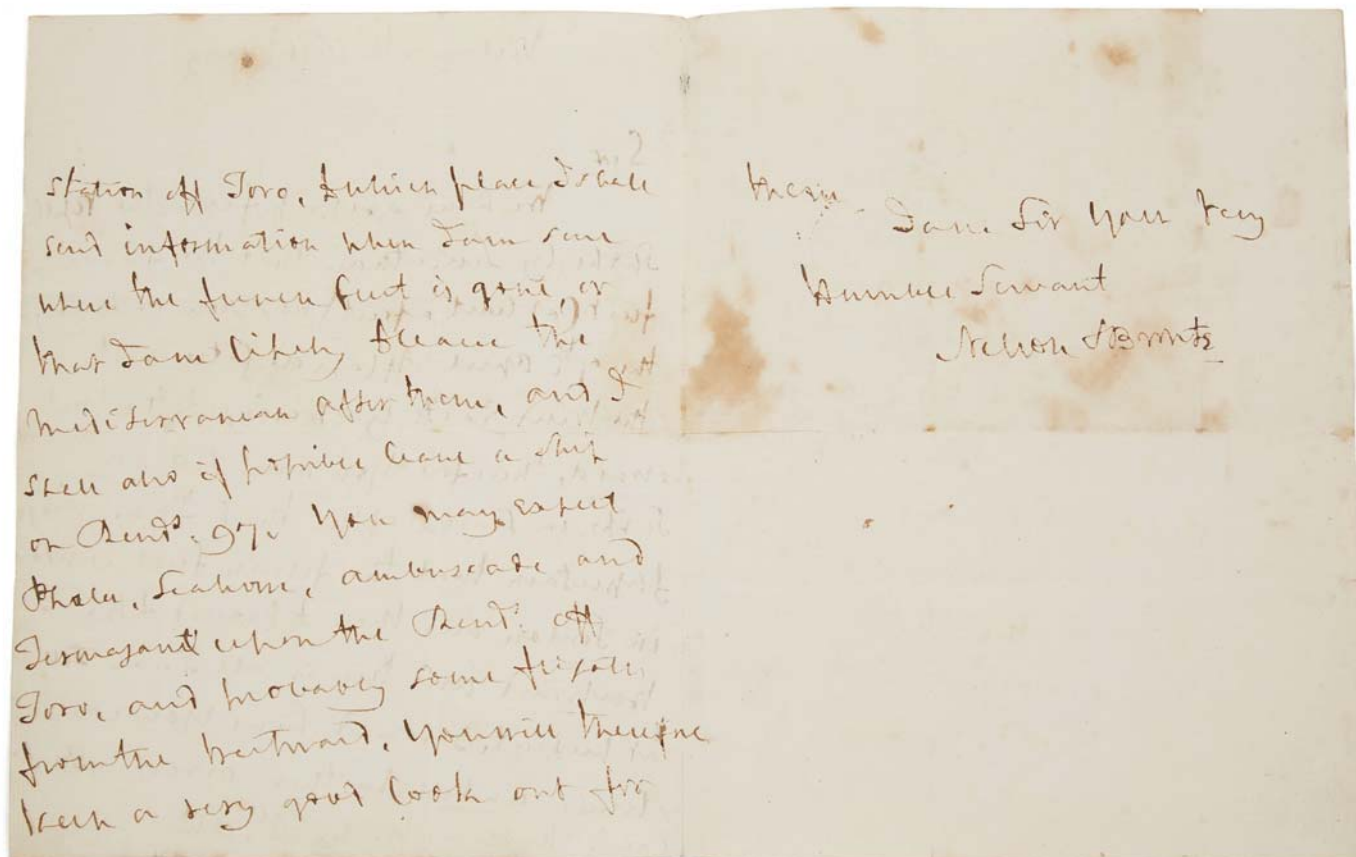 station off Toro, to which place I shall
send information when I am sure
where the french fleet is gone, or
that I am likely to leave the
Mediterranean after them, and I
shall also if possible leave a ship
on Rends. 97. You may expect
Phœbe, Seahorse, ambuscade and
Termagant upon the Rends. off
Toro, and probably some frigates
from the westward, You will therefore
keep a very good look out for
them
I am Sir Your Very
Humble Servant
Nelson & Bronte